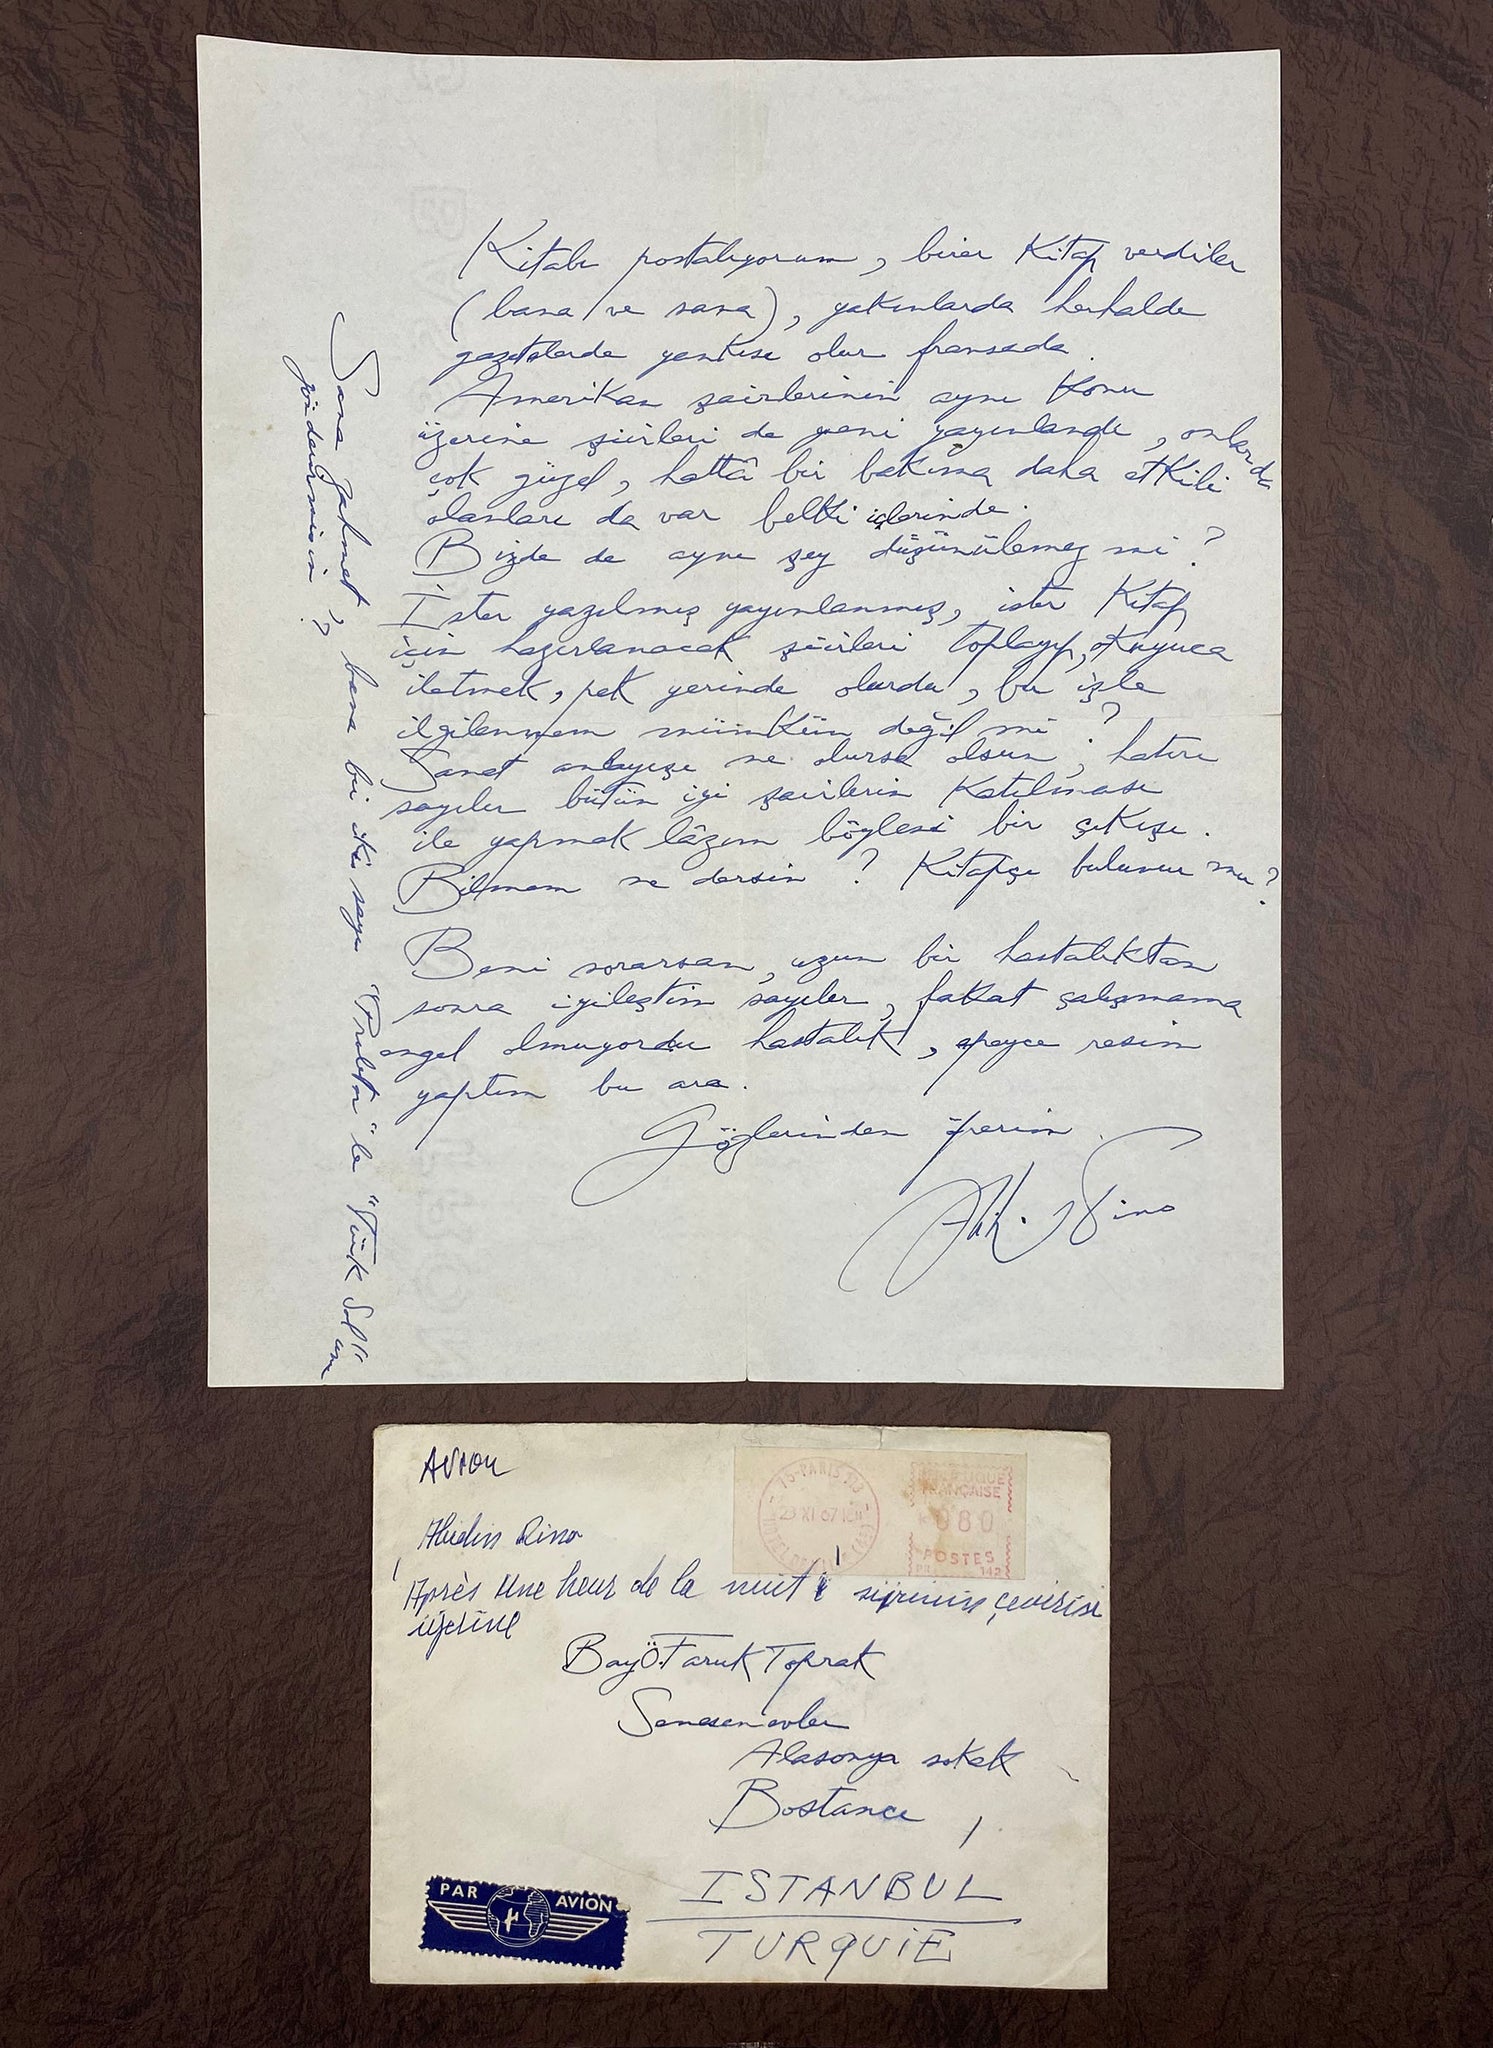 Kitabı postalıyorum, birer Kitap verdiler
(bana ve sana), yakınlarda herhalde
gazetelerde yankısı olur fransada.
Amerikan şairlerinin aynı Konu
üzerine şiirleri de yeni yayınlandı, onlar da
çok güzel, hattâ bir bakıma daha etkili
olanları da var belki içlerinde.
Bizde de aynı şey düşünülemez mi?
İster yazılmış yayınlanmış, ister Kitap
için hazırlanacak şiirleri toplayıp, okuyuca
iletmek, pek yerinde olurdu, bu işle
ilgilenmem mümkün değil mi?
Sanat anlayışı ne olursa olsun, hatırı
sayılır bütün iyi şairlerin Katılması
ile yapmak lâzım böylesi bir çıkışı.
Bilmem ne dersin? Kitapçı bulunur mu?
Beni sorarsan, uzun bir hastalıktan
sonra iyileştim sayılır, fakat çalışmama
engel olmuyordu hastalık, epeyce resim
yaptım bu ara.
Gözlerinden öperim.
Abidin Dino
Sana zahmet, bana bir iki sayı "Proleter"le "Türk Solu"nu
gönderirmisin?
AVION
Abidin Dino
Après Une heur de la nuit şiirinin çevirisi
üzerine
Bay Ö. Faruk Toprak
Senesenevler
Alasonya sokak
Bostancı
ISTANBUL
TURQUIE
75-PARIS 113
23 XI 67
HOTEL DE VILLE (4E)
REPUBLIQUE
FRANÇAISE
080
POSTES
142
PAR AVION